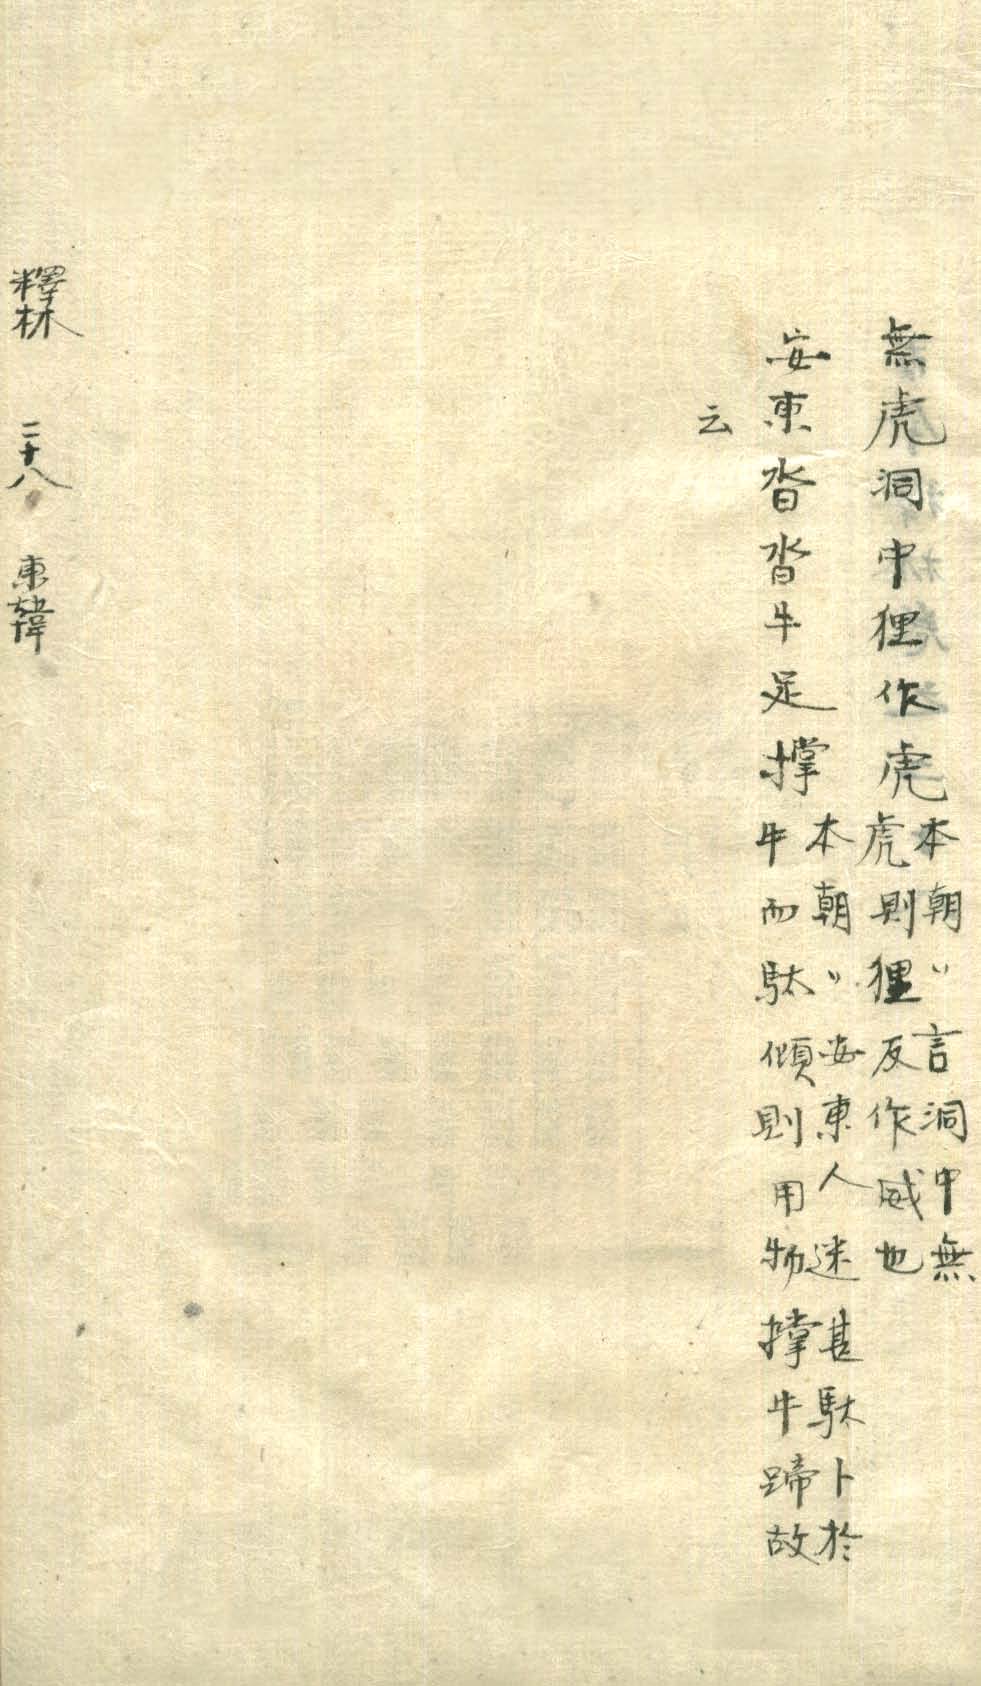 無虎洞中狸作虎
本朝〃言洞中無
虎則狸反作威也
安東沓沓牛足撑
本朝〃安東人迷甚駄卜於
牛而駄傾則用物撑牛蹄故
云
釋林 二十八 東韓